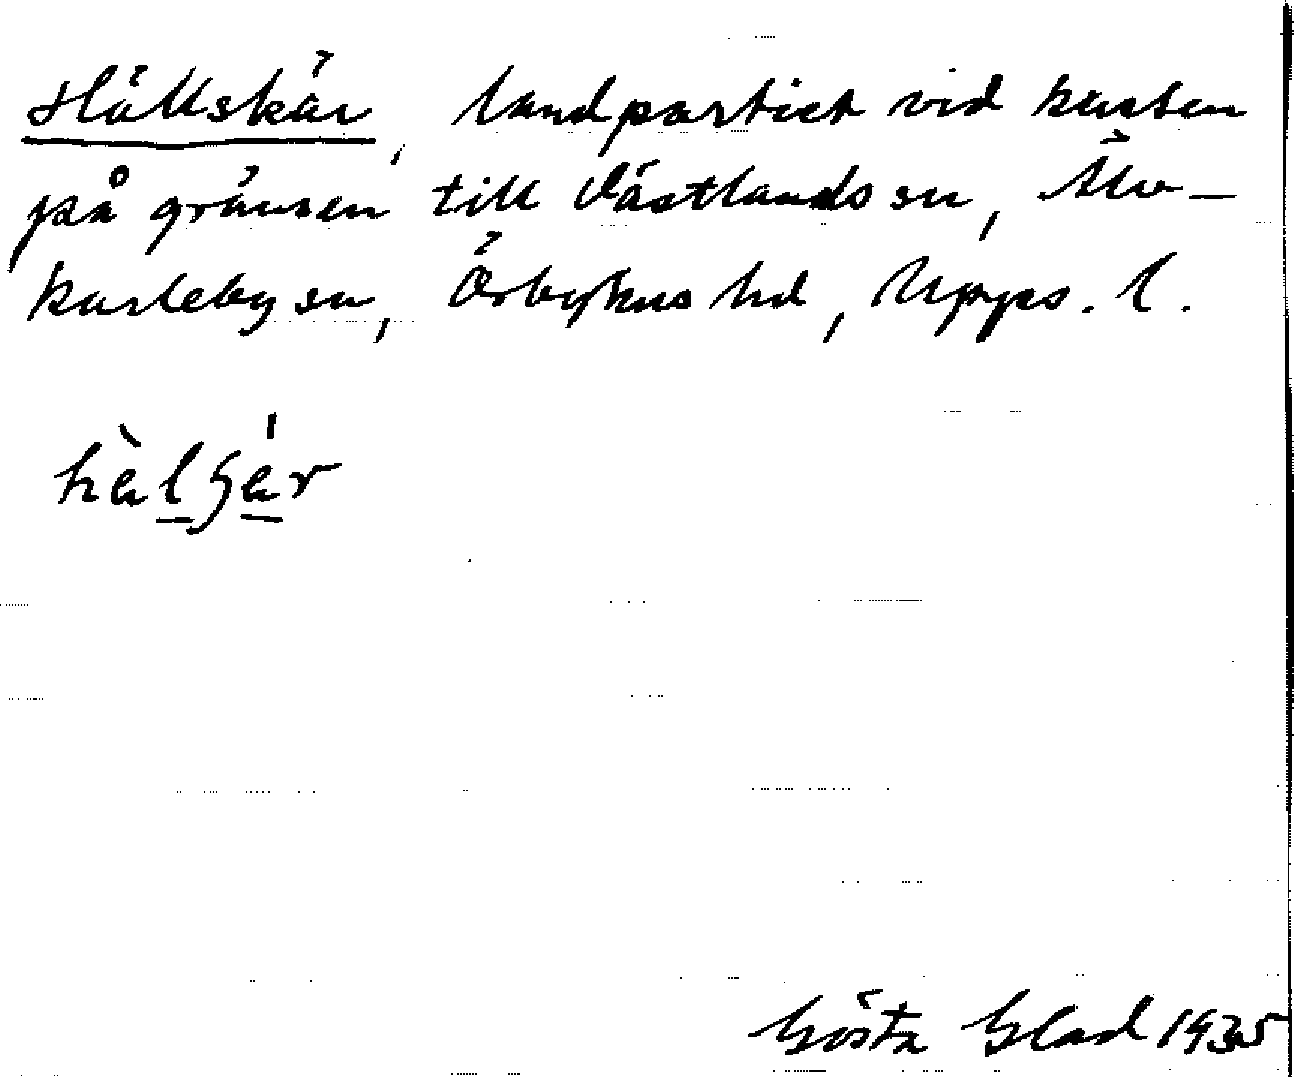 Hällskär, landpartiet vid kusten
på gränsen till Västlands sn, Älv-
karleby sn, Örbyhus hd, Upps. l.
Gösta Blad 1935